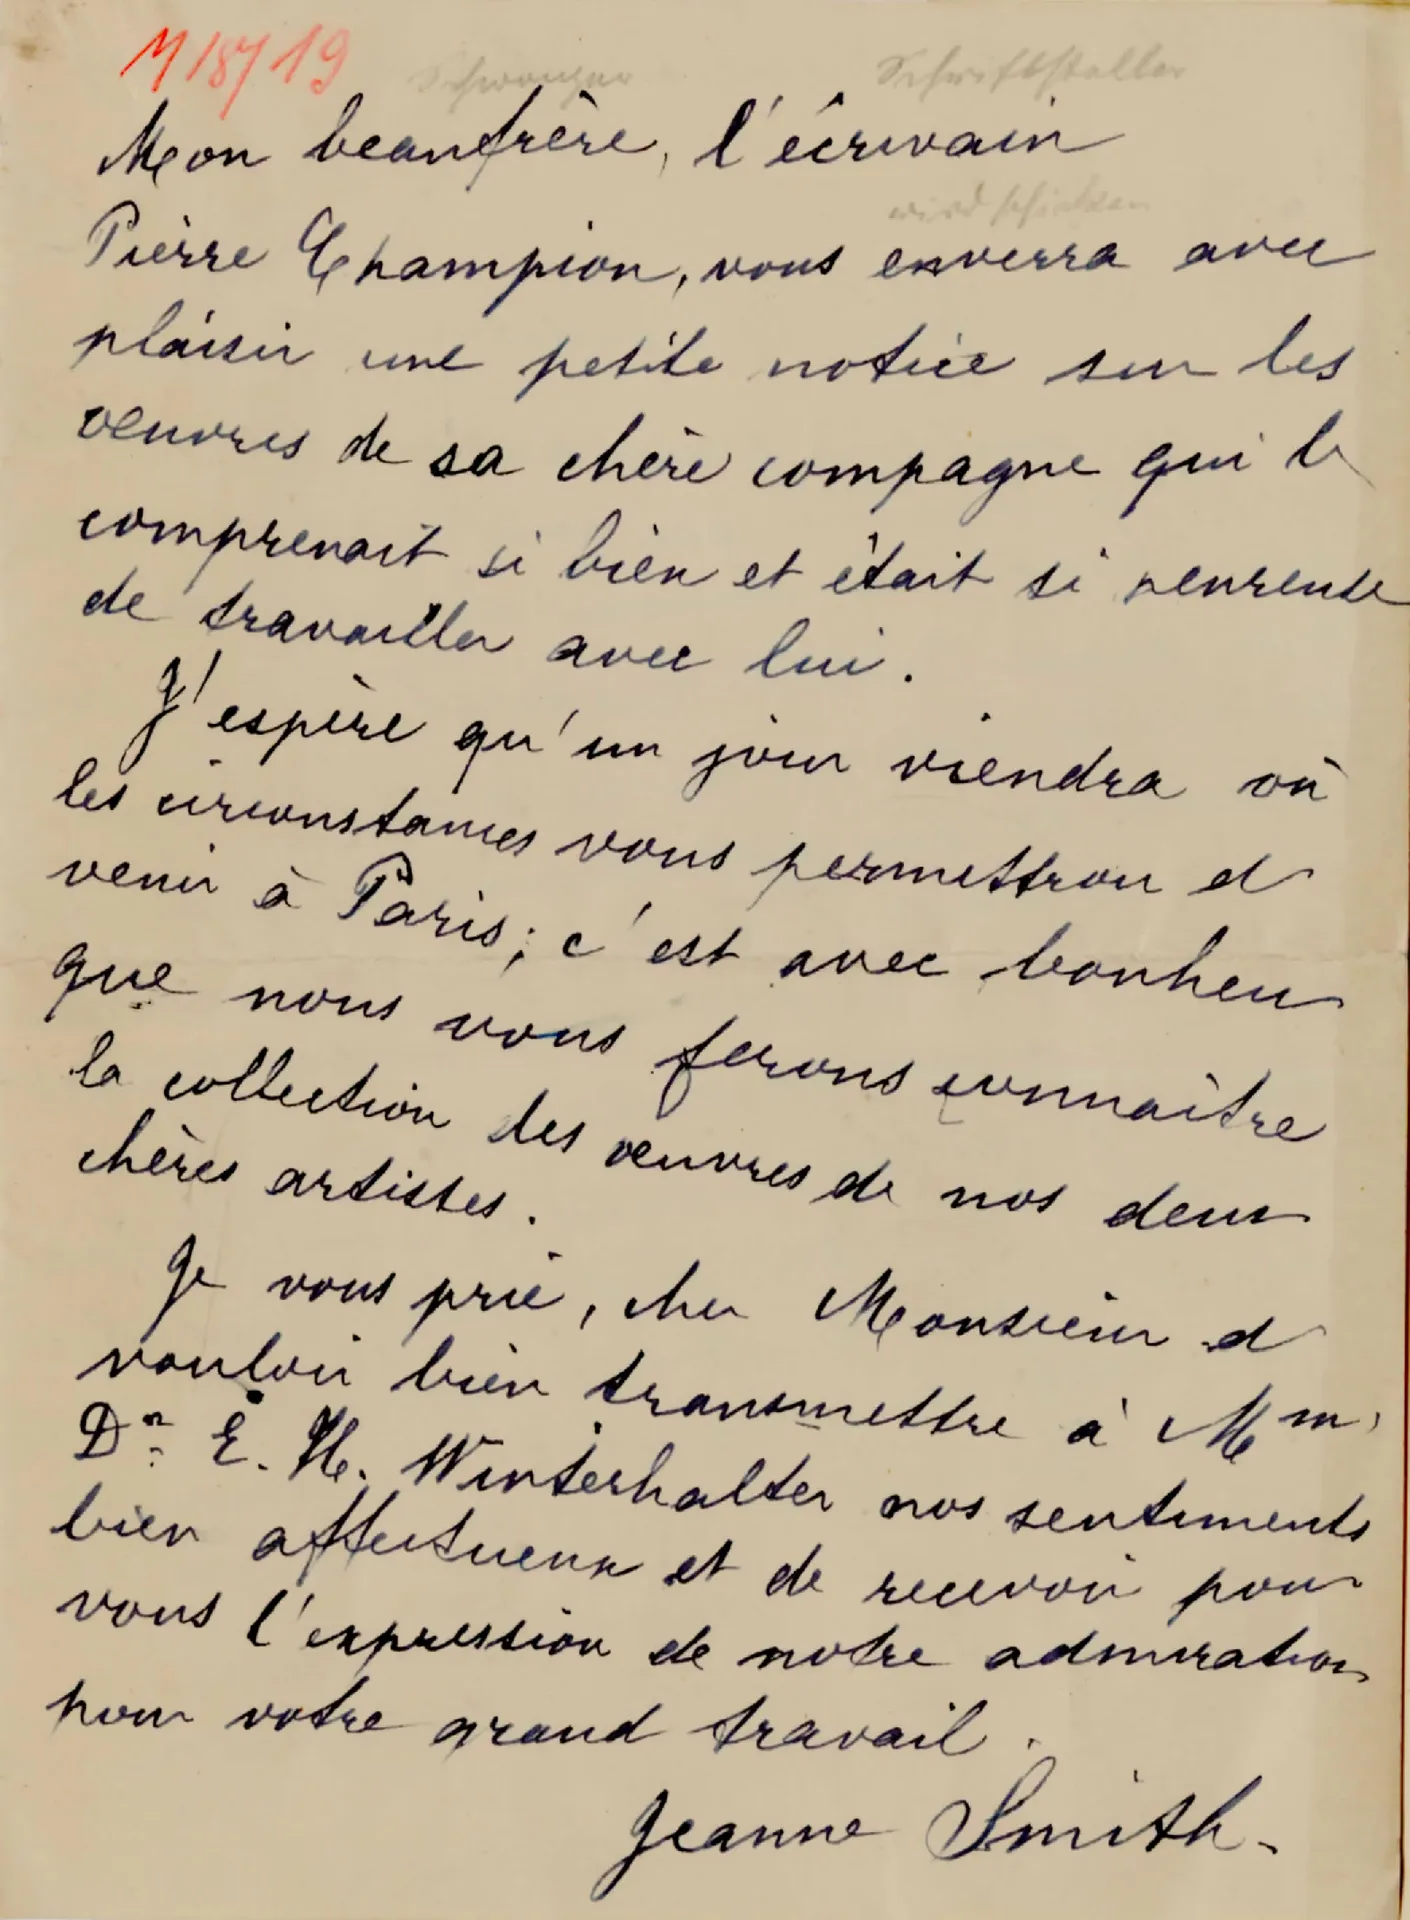 M 18/19 Schwager Schriftsteller
Mon beaufrère, l'écrivain
wird schicken
Pierre Champion, vous enverra avec
plaisir une petite notice sur les
oeuvres de sa chère compagne qui le
comprenait si bien et était si heureuse
de travailler avec lui.
J'espère qu'un jour viendra où
les circonstances vous permettron de
venir à Paris; c'est avec bonheur
que nous vous ferons connaître
la collection des oeuvres de nos deux
chères artistes.
Je vous prie, cher Monsieur de
vouloir bien transmettre à Mme
Dr. E. H. Winterhalter nos sentiments
bien affectueux et de recevoir pour
vous l'expression de notre admiration
pour votre grand travail.
Jeanne Smith.